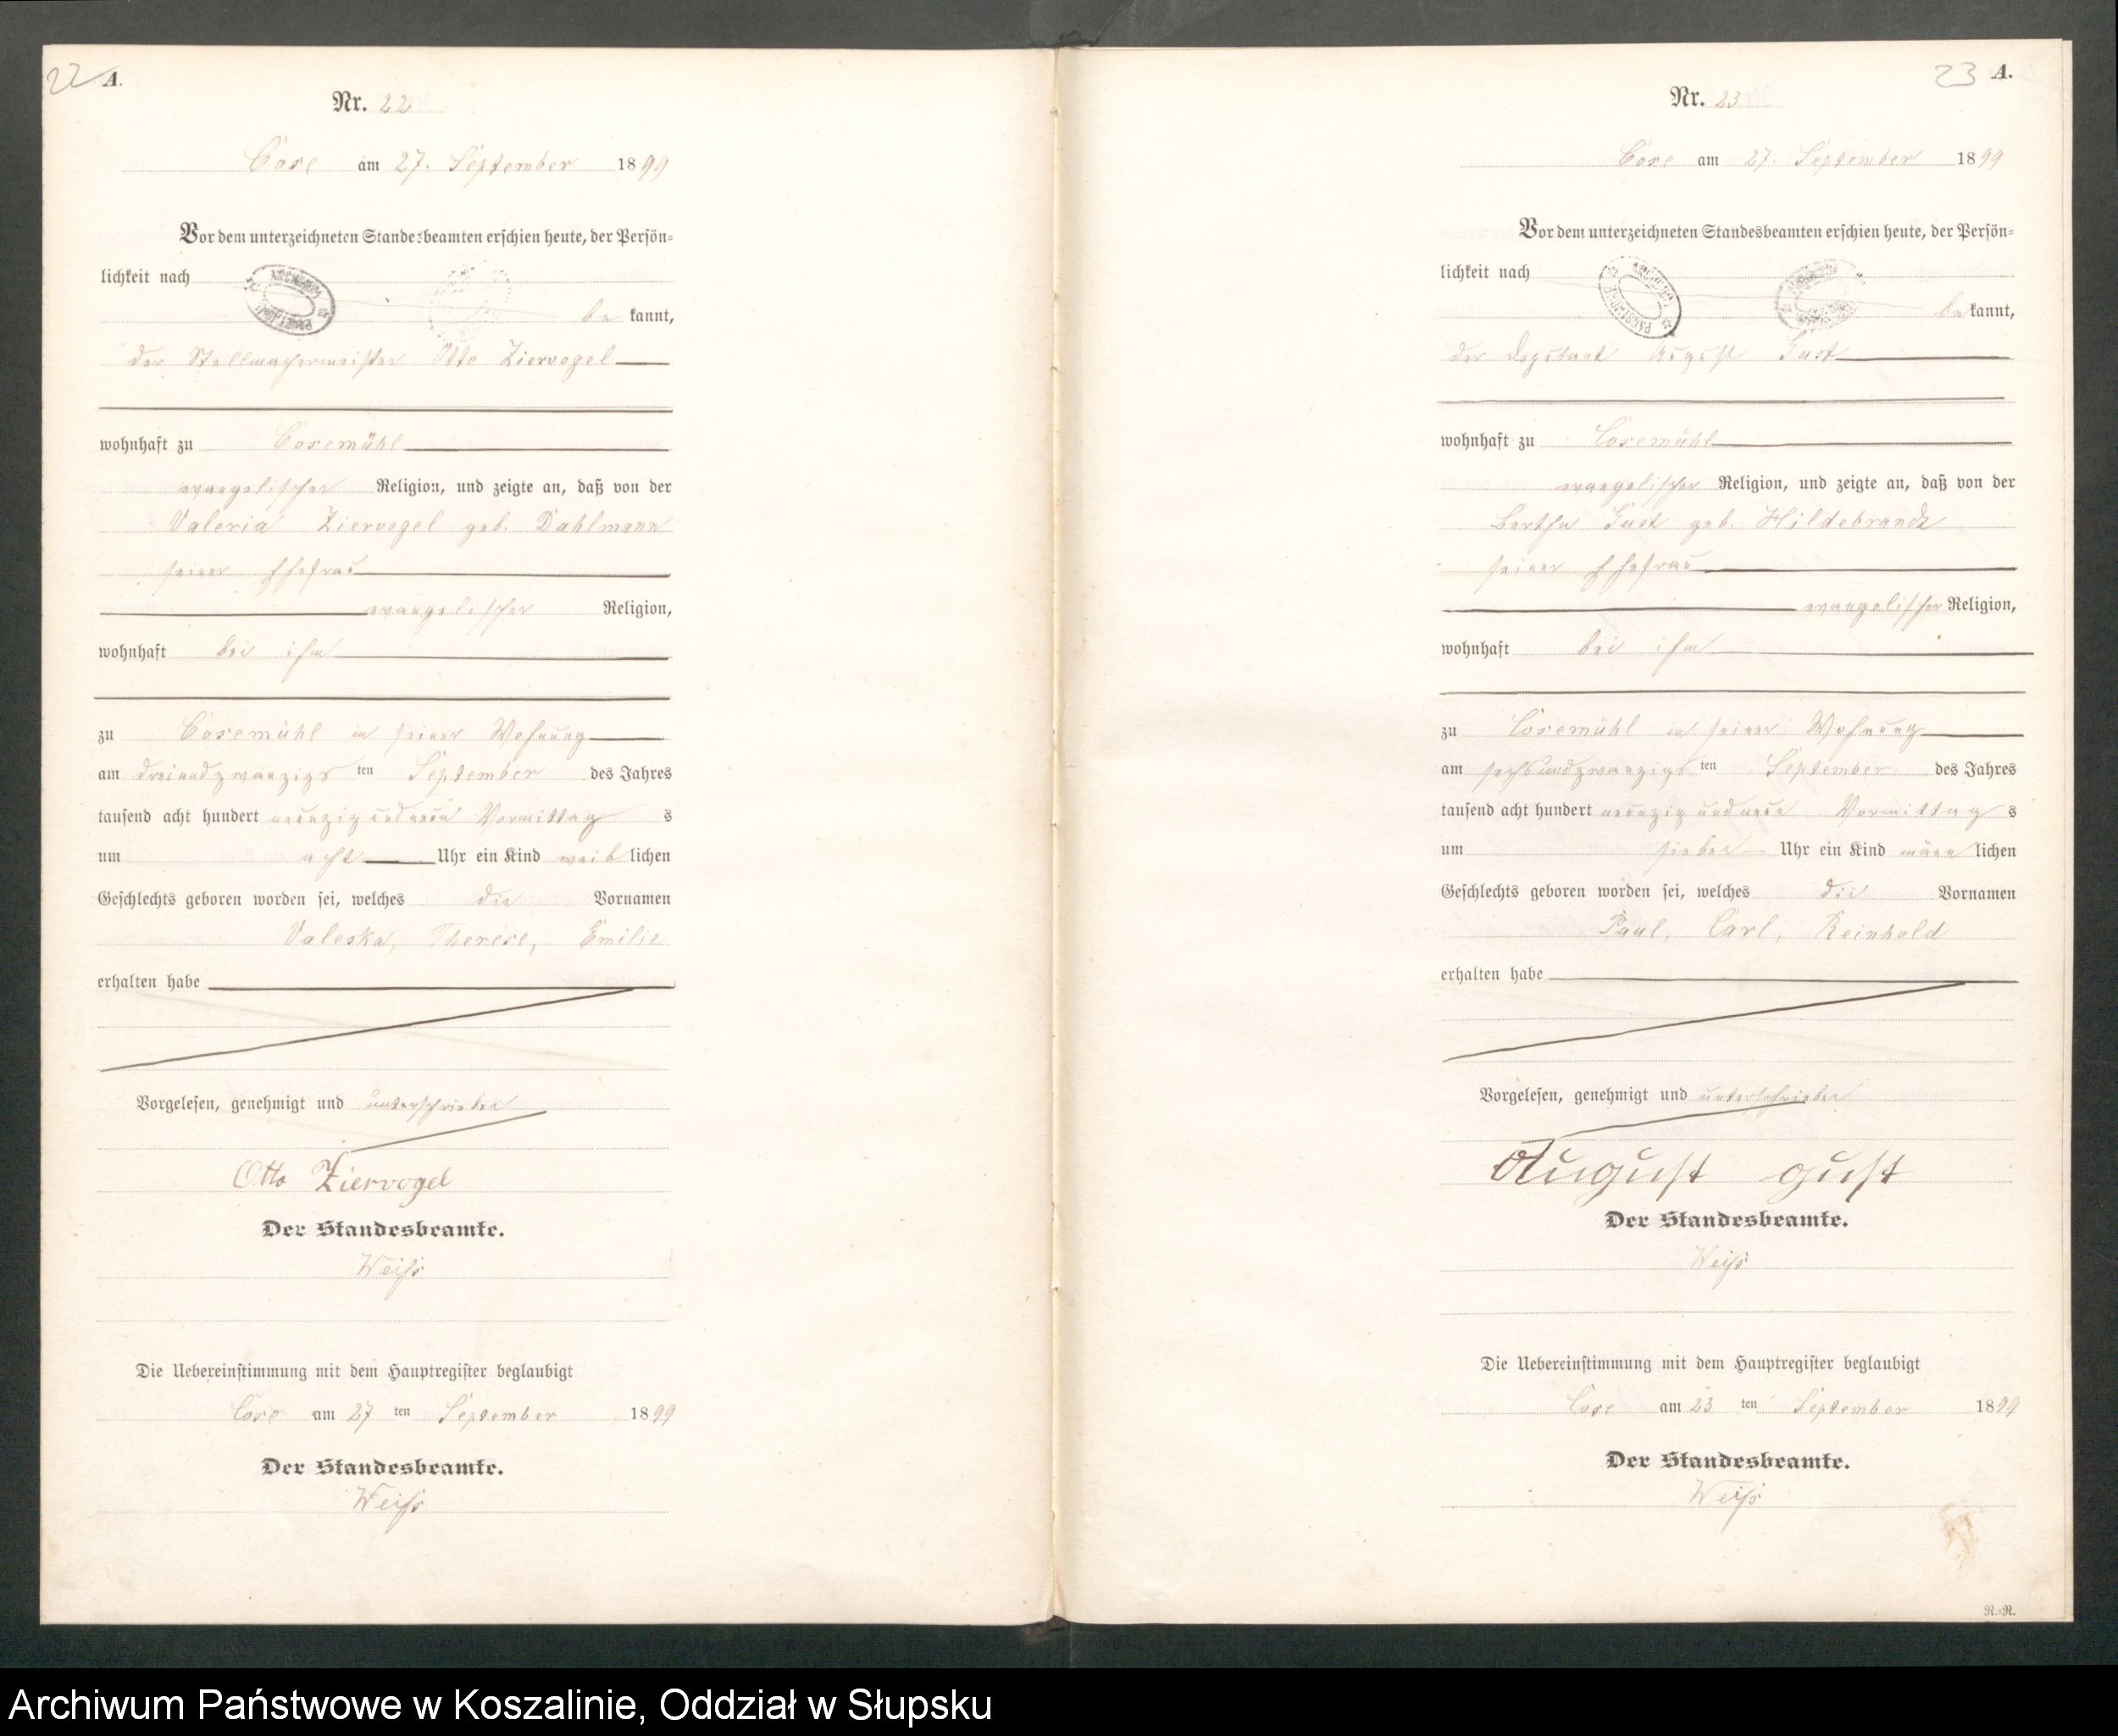 22 A.
Nr. 22
Cose am 27. September 1899
Vor dem unterzeichneten Standesbeamten erschien heute, der Persön=
lichkeit nach
be kannt,
der Stellmachermeister Otto Ziervogel
wohnhaft zu Cosemühl
evangelischer Religion, und zeigte an, daß von der
Valeria Ziervogel geb. Dahlmann
seiner Ehefrau
evangelischer Religion,
wohnhaft bei ihm
zu Cosemühl in seiner Wohnung
am dreiundzwanzigs ten September des Jahres
tausend acht hundert neunzig und neun Vormittag s
um acht Uhr ein Kind weib lichen
Geschlechts geboren worden sei, welches die Vornamen
Valeska, Therese, Emilie
erhalten habe
Vorgelesen, genehmigt und unterschrieben
Otto Ziervogel
Der Standesbeamte.
Weiß
Die Uebereinstimmung mit dem Hauptregister beglaubigt
Cose am 27 ten September 1899
Der Standesbeamte.
Weiß
23 A.
Nr. 23
Cose am 27. September 1899
Vor dem unterzeichneten Standesbeamten erschien heute, der Persön=
lichkeit nach
be kannt,
der Deputant August Gust
wohnhaft zu Cosemühl
evangelischer Religion, und zeigte an, daß von der
Bertha Gust geb. Hildebrandt
seiner Ehefrau
evangelischer Religion,
wohnhaft bei ihm
zu Cosemühl in seiner Wohnung
am sechsundzwanzigs ten September des Jahres
tausend acht hundert neunzig und neun Vormittag s
um sieben Uhr ein Kind männ lichen
Geschlechts geboren worden sei, welches die Vornamen
Paul, Carl, Reinhold
erhalten habe
Vorgelesen, genehmigt und unterschrieben
August Gust
Der Standesbeamte.
Weiß
Die Uebereinstimmung mit dem Hauptregister beglaubigt
Cose am 23 ten September 1899
Der Standesbeamte.
Weiß
R.=R.
Archiwum Państwowe w Koszalinie, Oddział w Słupsku